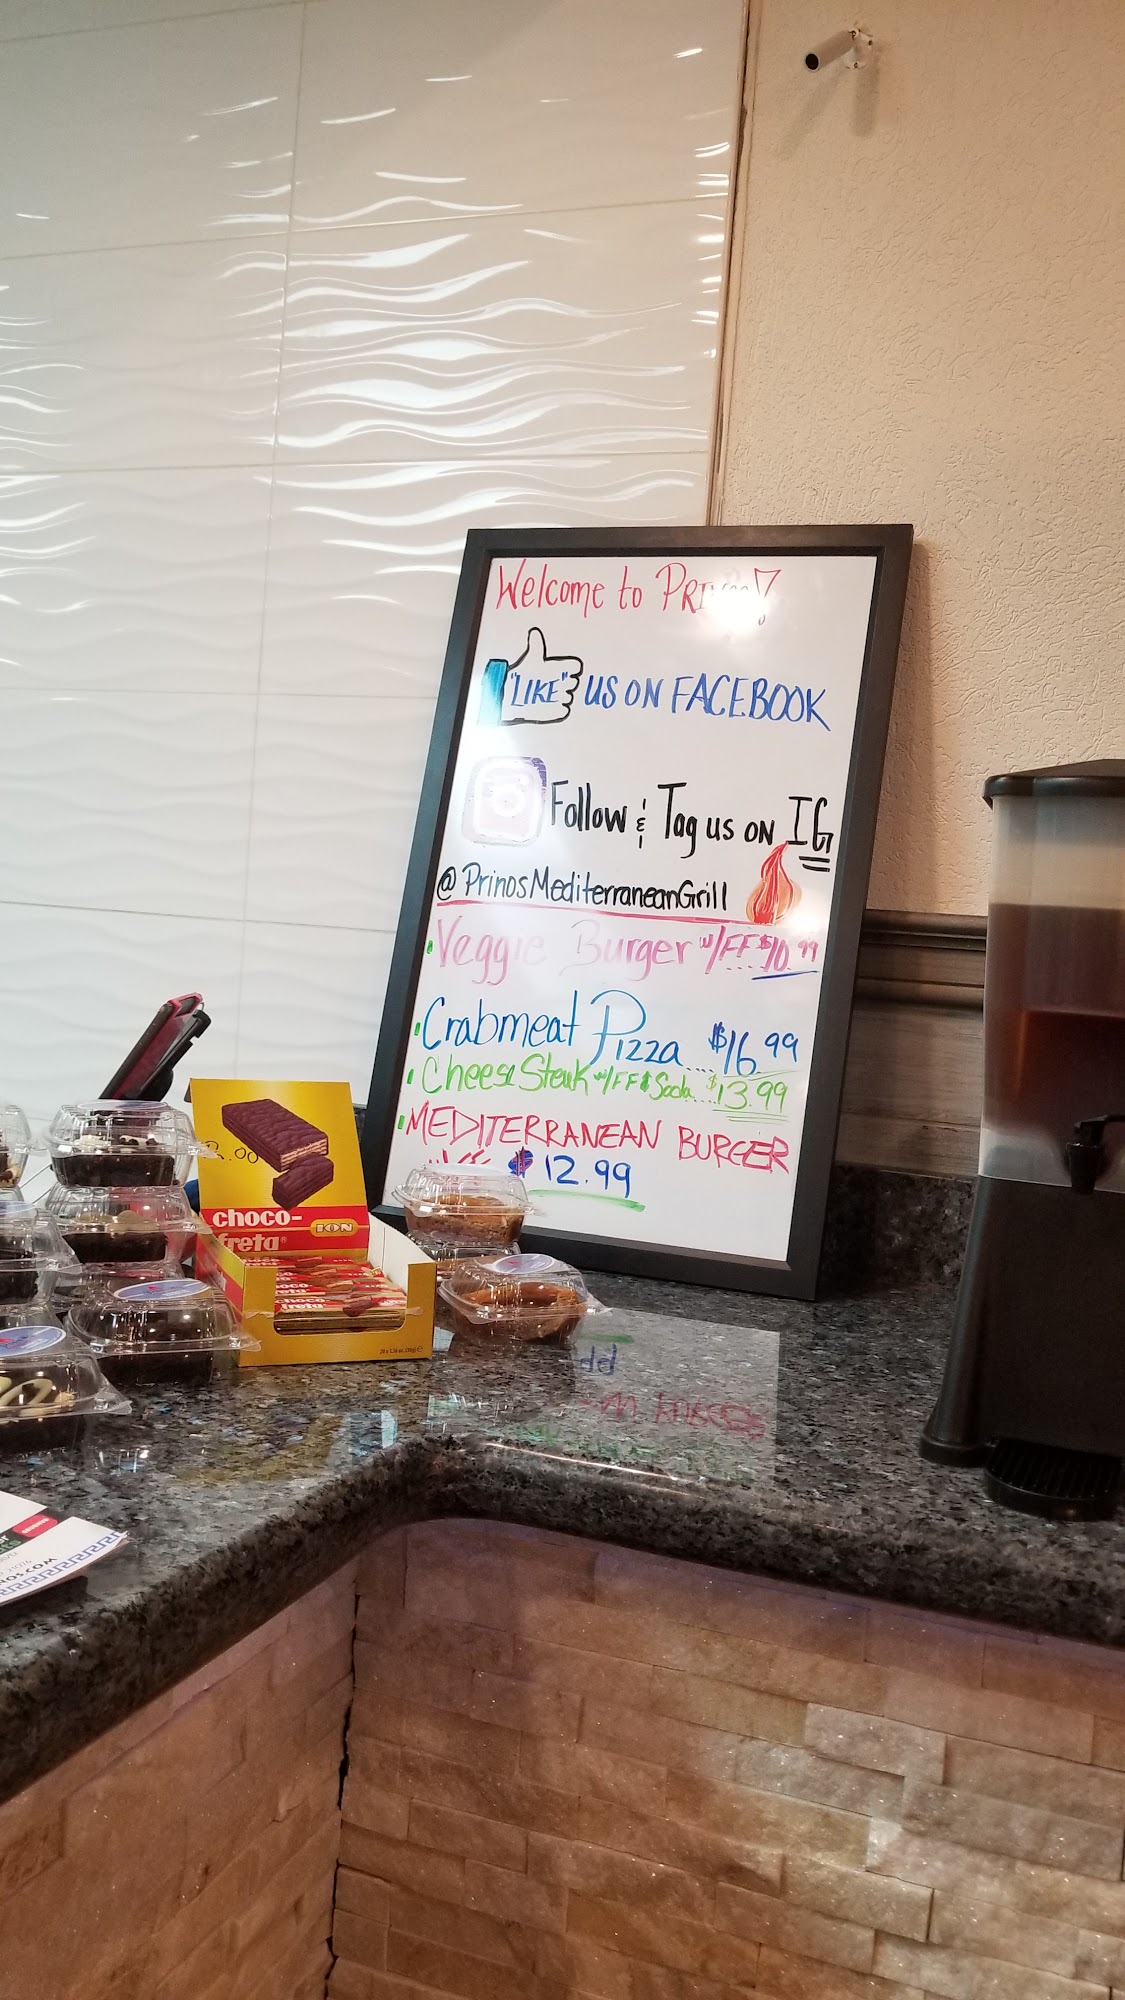 Welcome to
"LIKE" US ON FACEBOOK
Follow & Tag us on IG
@PrinosMediterraneanGrill
Veggie Burger w/FF $10.99
Crabmeat Pizza.... $16.99
Cheese Steak w/FF & Soda... $13.99
MEDITERRANEAN BURGER
w/FF $12.99
choco-
freta®
ION